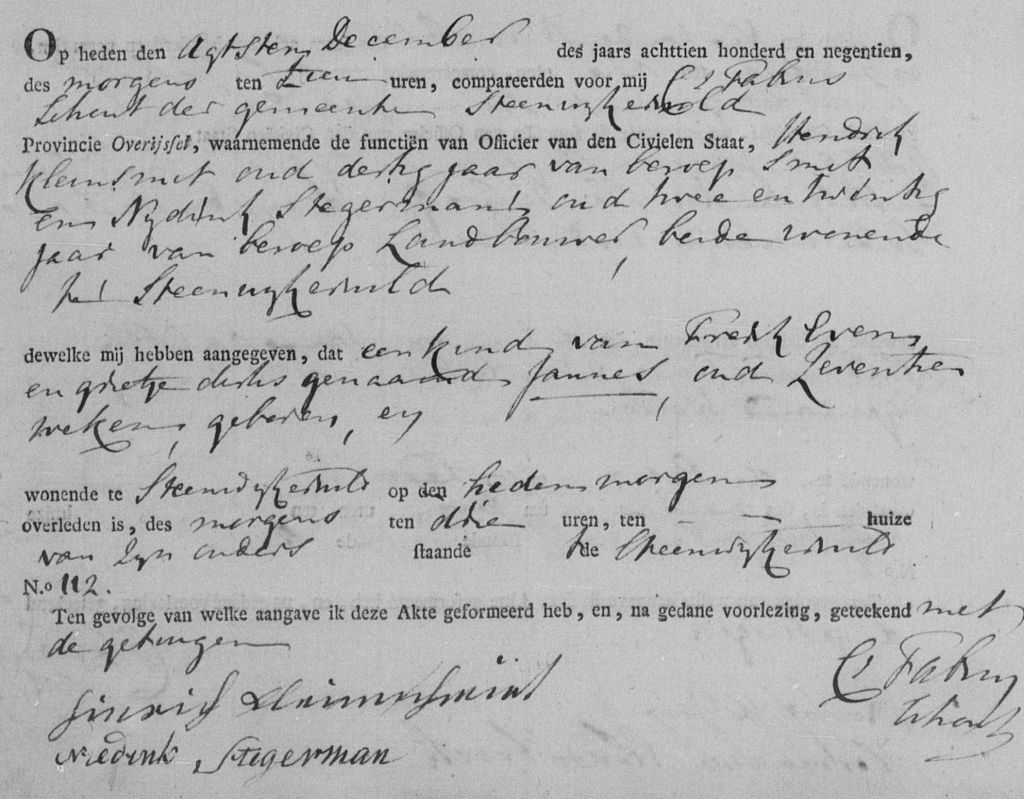 Op heden den Agtsten December des jaars achttien honderd en negentien,
des morgens ten Tien uren, compareerden voor mij Cs Fabius
Schout der gemeente Steenwykerwold
Provincie Overijssel, waarnemende de functiën van Officier van den Civielen Staat, Hendrik
Kleinsmit oud dertig jaar van beroep Smit
en Stegerman oud twee en twintig
jaar van beroep Landbouwer, beide wonende
te Steenwykerwold
dewelke mij hebben aangegeven, dat een kind van Fredrik Evens
en grietje derks genaamd Jannes, oud Zeventien
weken, geboren, en
wonende te Steenwykerwold op den heden morgen
overleden is, des morgens ten drie uren, ten huize
van Zyn ouders staande te Steenwykerwold
N.o 112.
Ten gevolge van welke aangave ik deze Akte geformeerd heb, en, na gedane voorlezing, geteekend met
de getuigen
Hinrich Kleinschmidt
Stegerman
Cs Fabius
Schout